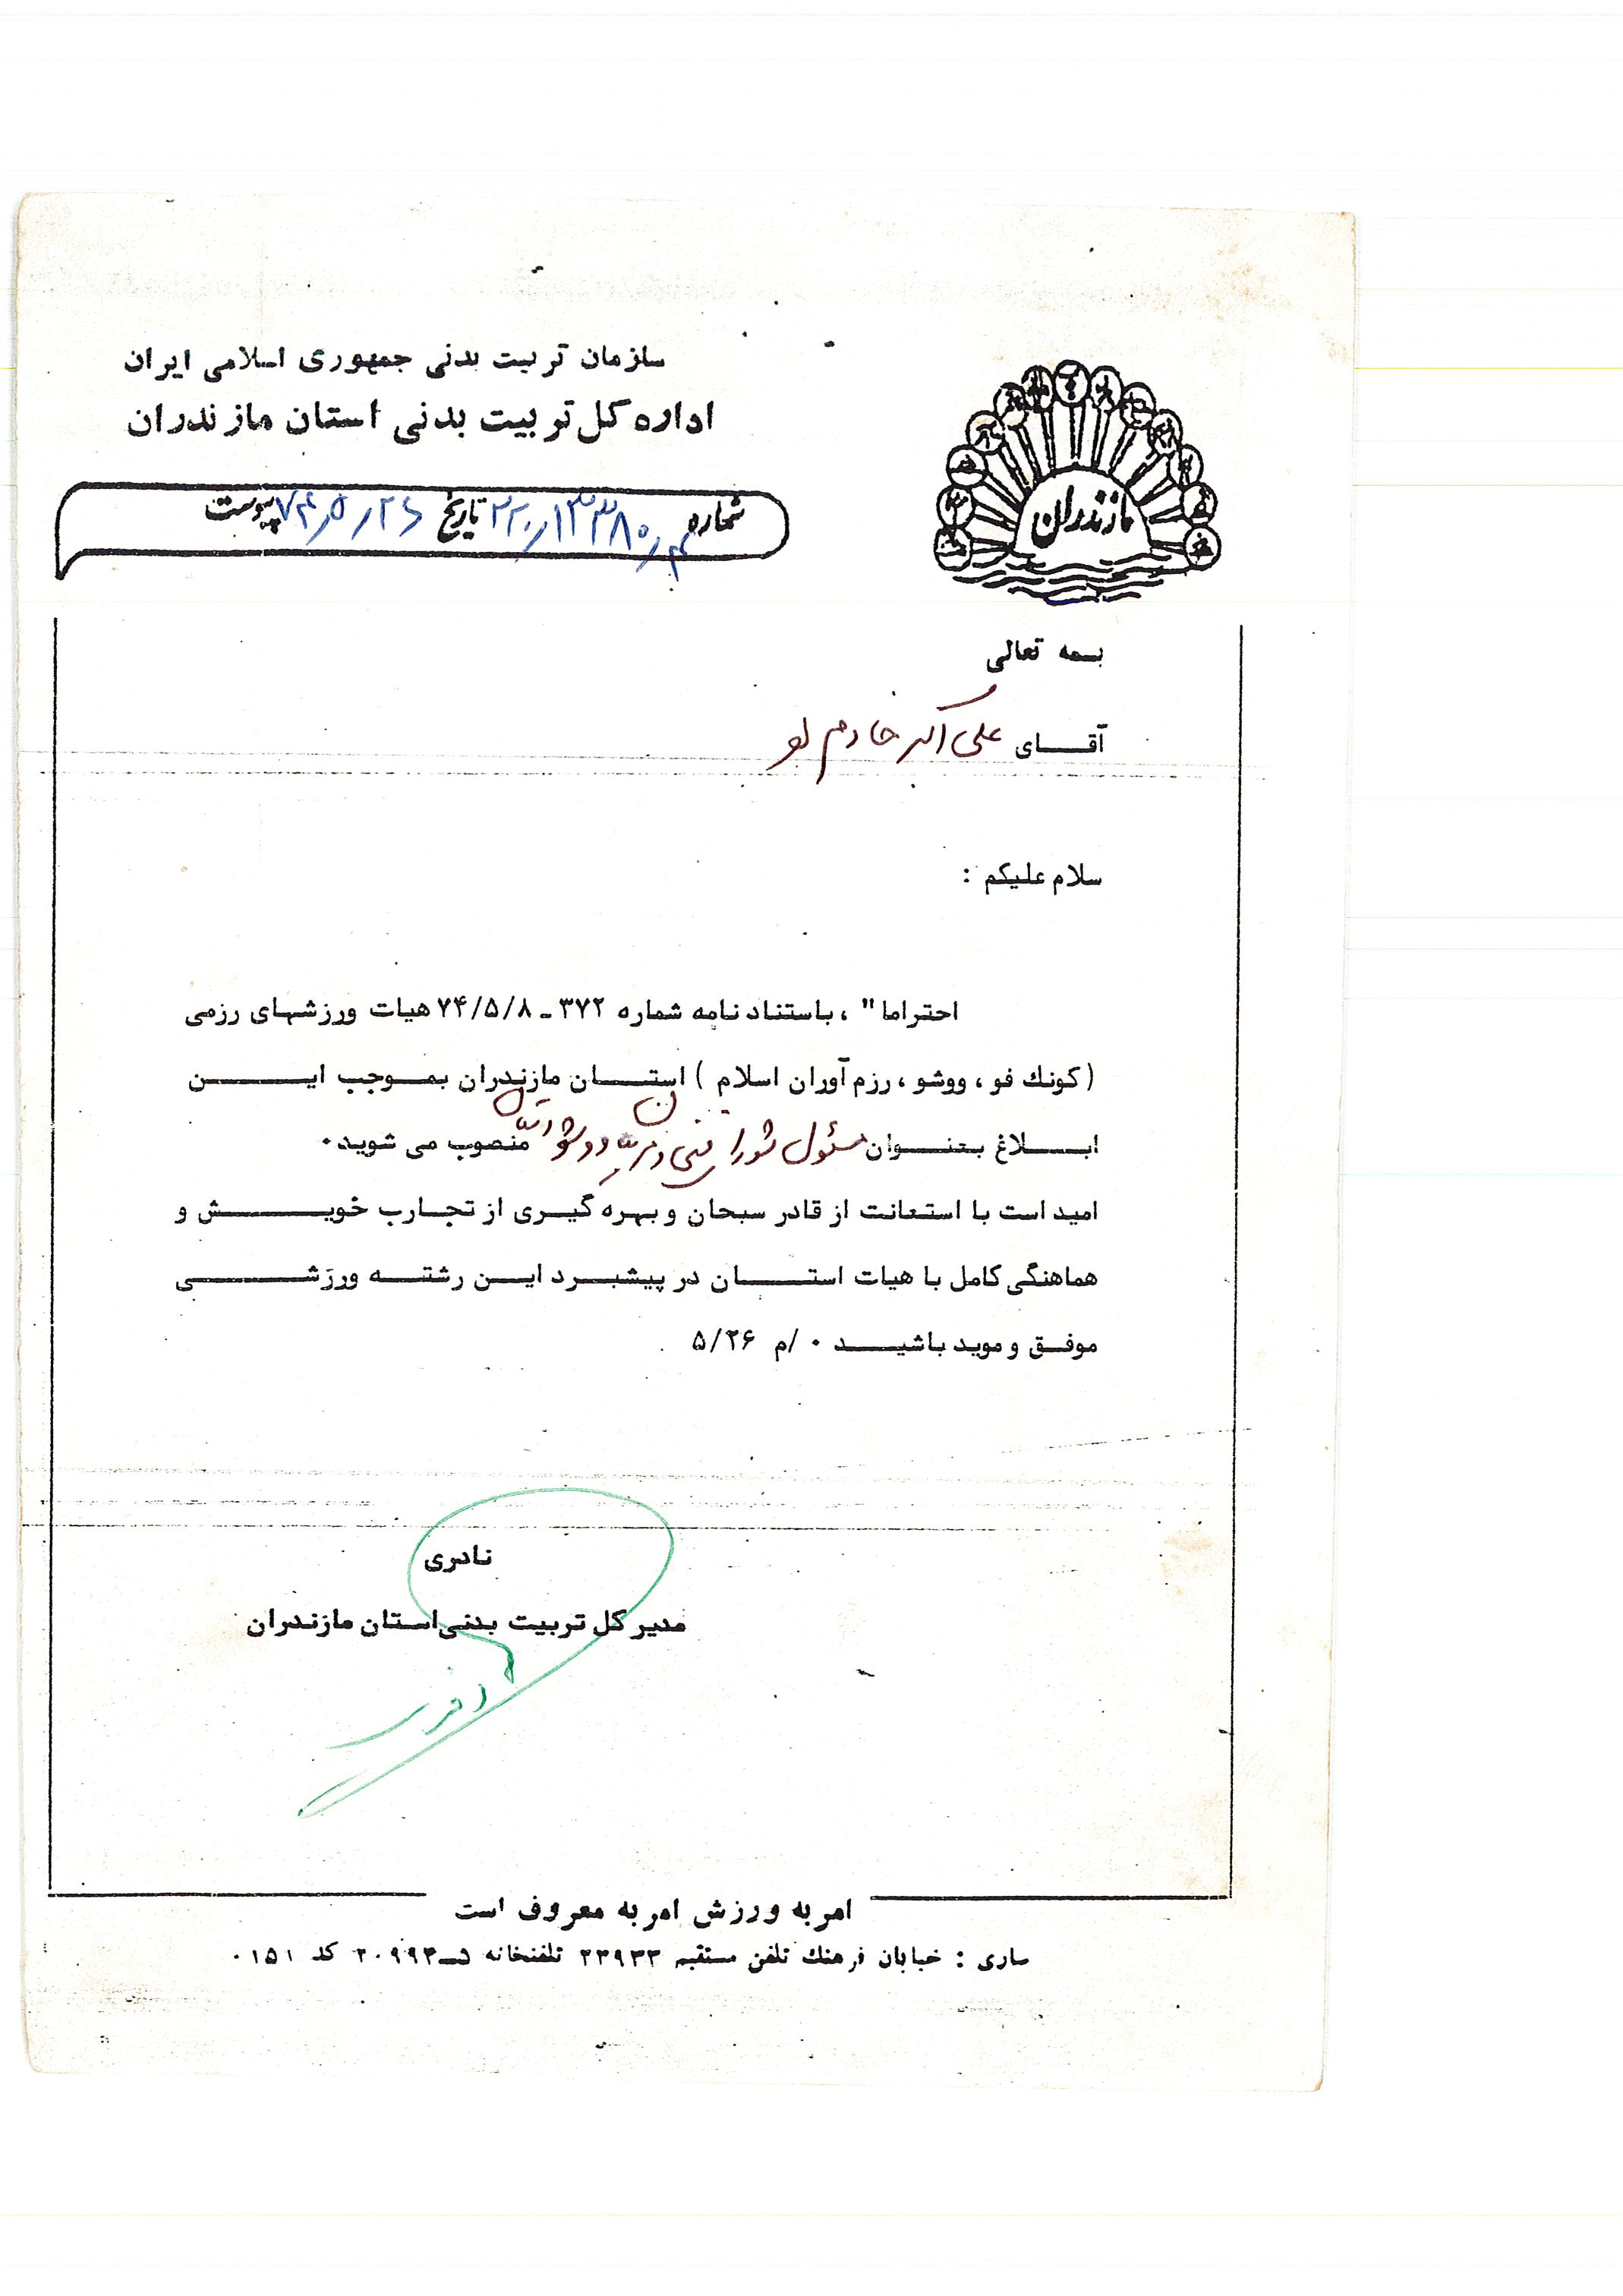 سازمان تربیت بدنی جمهوری اسلامی ایران
اداره کل تربیت بدنی استان مازندران
شماره تاریخ ۷۴٫۵٫۲۶ پیوست
مازندران
بسمه تعالی
آقای علی اکبر خادم لو
سلام علیکم :
احتراما" ، باستناد نامه شماره ۳۷۲ ـ ۷۴/۵/۸ هیات ورزشهای رزمی
( کونك فو ، ووشو ، رزم آوران اسلام ) استان مازندران بموجب این
ابلاغ بعنوان مسئول شورای فنی ووشو منصوب می شوید۰
امید است با استعانت از قادر سبحان و بهره گیری از تجارب خویش و
هماهنگی کامل با هیات استان در پیشبرد این رشته ورزشی
موفق و موید باشید ۰ /م ۵/۲۶
نادری
مدیر کل تربیت بدنی استان مازندران
امر به ورزش امر به معروف است
ساری : خیابان فرهنك تلفن مستقیم ۲۳۹۳۳ تلفنخانه کد ۰۱۵۱